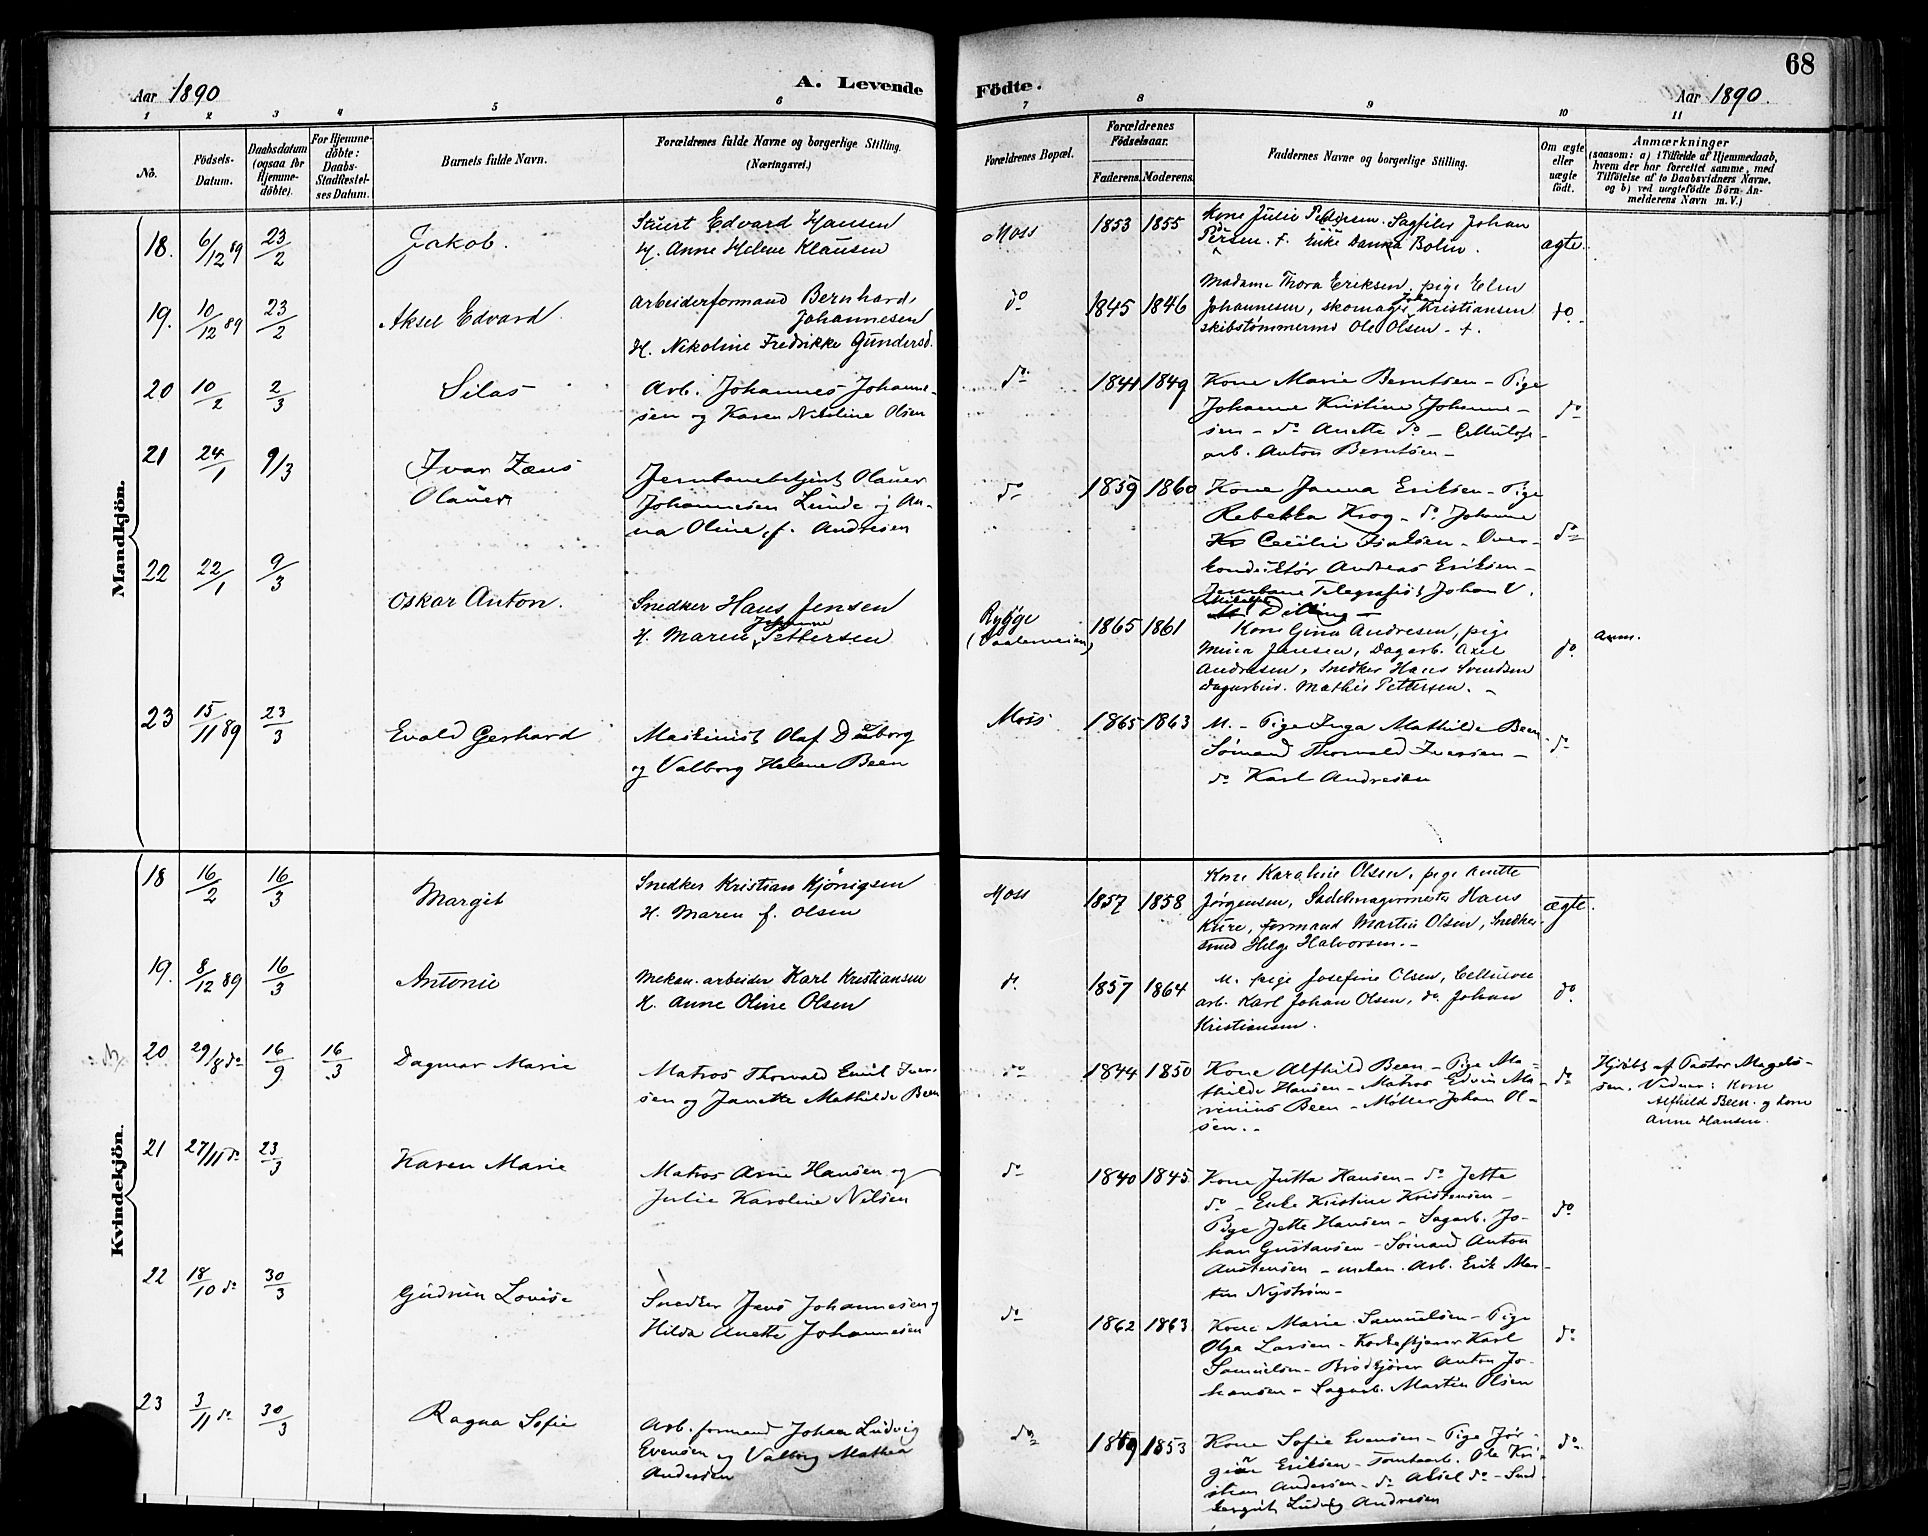 68
Aar 1890
A. Levende
Födte.
Aar 1890.
1 2 3 4 5 6 7 8 9 10 11
No.
Födsels-
Datum.
Daabsdatum
(ogsaa for
Hjemme-
döbte).
For Hjemme-
döbte:
Daabs-
Stadfæstel-
ses Datum.
Barnets fulde Navn.
Forældrenes fulde Navne og borgerlige Stilling.
(Næringsvei.)
Forældrenes Bopæl.
Forældrenes
Födselsaar.
Faderens. Moderens.
Faddernes Navne og borgerlige Stilling.
Om ægte
eller
uægte
födt.
Anmærkninger
(saasom: a) i Tilfælde af Hjemmedaab,
hvem der har forrettet samme, med
Tilföielse af to Daabsvidners Navne,
og b) ved uægtefödte Börn An-
melderens Navn m. V.)
Mandkjön.
18. 6/12 89 23/2 Jakob.
Stuert Edvard Hansen
H. Anne Helene Klausen
Moss 1853 1855
Kone Julie Pedersen. Sagfiler Johan
Persen. F. Enke Danna Bolin.
ægte.
19. 10/12 89 23/2 Aksel Edvard.
Arbeiderformand Bernhard
Johannesen
H. Nikoline Fredrikke Gundersd.
do 1845 1846
Madame Thora Eriksen, pige Elen
Johannesen, skomager Johan Kristiansen
skibstømmermd Ole Olsen - f.
do.
20 10/2 2/3 Silas
Arb. Johannes Johanne-
sen og Karen Nikoline Olsen
do 1844 1849
Kone Marie Berntsen - Pige
Johanne Kristine Johanne-
sen - do Anette do - Cellulose-
arb. Anton Berntsen -
do
21 24/1 9/3 Ivar Zæus
Olauer
Jernbanebetjent Olauer
Johannesen Lunde og An-
na Oline f. Andresen
do 1859 1860
Kone Janna Eriksen - Pige
Rebekka Krog - do Johanne
Cecilie Isaksen - Over-
konduktør Andreas Eriksen -
Jernbane Telegrafist Johan V.
Dilling -
do
22 22/1 9/3 Oskar Anton.
Snedker Hans Jensen
H. Maren Johanne Pettersen
Rygge
(Vaalerveien) 1865 1861
Kone Gina Andresen, pige
Mina Jensen, Dagarb. Axel
Andresen, Snedker Hans Svendsen
dagarbeid. Mathis Pettersen. -
do.
Anm.
23 15/11 89 23/3 Evald Gerhard
Maskinist Olaf Duborg
og Valborg Helene Been
Moss 1865 1863
M. - Pige Inga Mathilde Been
Sømand Thorvald Iversen -
do Karl Andresen
do
Kvindekjön.
18 16/2 16/3 Margit
Snedker Kristian Kjönigsen
H. Maren f. Olsen
Moss 1857 1858
Kone Karoline Olsen, pige Anette
Jørgensen, Sadelmagermester Hans
Kure, formand Martin Olsen, Snedker-
svend Helge Halvorsen. -
ægte.
19. 8/12 89 16/3 Antonie
Mekan. arbeider Karl Kristiansen
H. Anne Oline Olsen
do. 1857 1864
M. pige Josefine Olsen, Cellulose
arb. Karl Johan Olsen, do. Johan
Kristiansen.
do.
20 29/8 do 16/9 16/3 Dagmar Marie
Matros Thorvald Emil Iver-
sen og Janette Mathilde Been
do 1844 1850
Kone Alfhild Been - Pige Ma-
thilde Hansen - Matros Edvin Ma-
rinius Been - Møller Johan Ol-
sen. -
do
Hjdøbt af Pastor Magels-
sen. Vidner: Kone
Alfhild Been og kone
Anne Hansen.
21 27/11 do 23/3 Karen Marie
Matros Arne Hansen og
Julie Karoline Nilsen
do 1840 1845
Kone Jutta Hansen - do Jette
do - Enke Kristine Kristensen -
Pige Jette Hansen - Sagarb. Jo-
han Gustavsen - Sømand Anton
Austensen - mekan. Arb. Erik Mar-
tin Nystrøm -
do
22 18/10 do 30/3 Gudrun Lovise
Snedker Jens Johannesen og
Hilda Anette Johannesen
do 1862 1863
Kone Marie Samuelsen - Pige
Olga Larsen - Karl
Samuelsen - Brødkjører Anton Jo-
hansen - Sagarb. Martin Olsen
do
23 3/11 do 30/3 Ragna Sofie
Arb. formand Johan Ludvig
Evensen og Valborg Mathea
Andersen
do 1849 1853
Kone Sofie Evensen - Pige Jør-
gine Eriksen - Tomtearb. Ole Kri-
stian Andersen - do Aksel do - Sned-
kersvend Ludvig Andresen
do